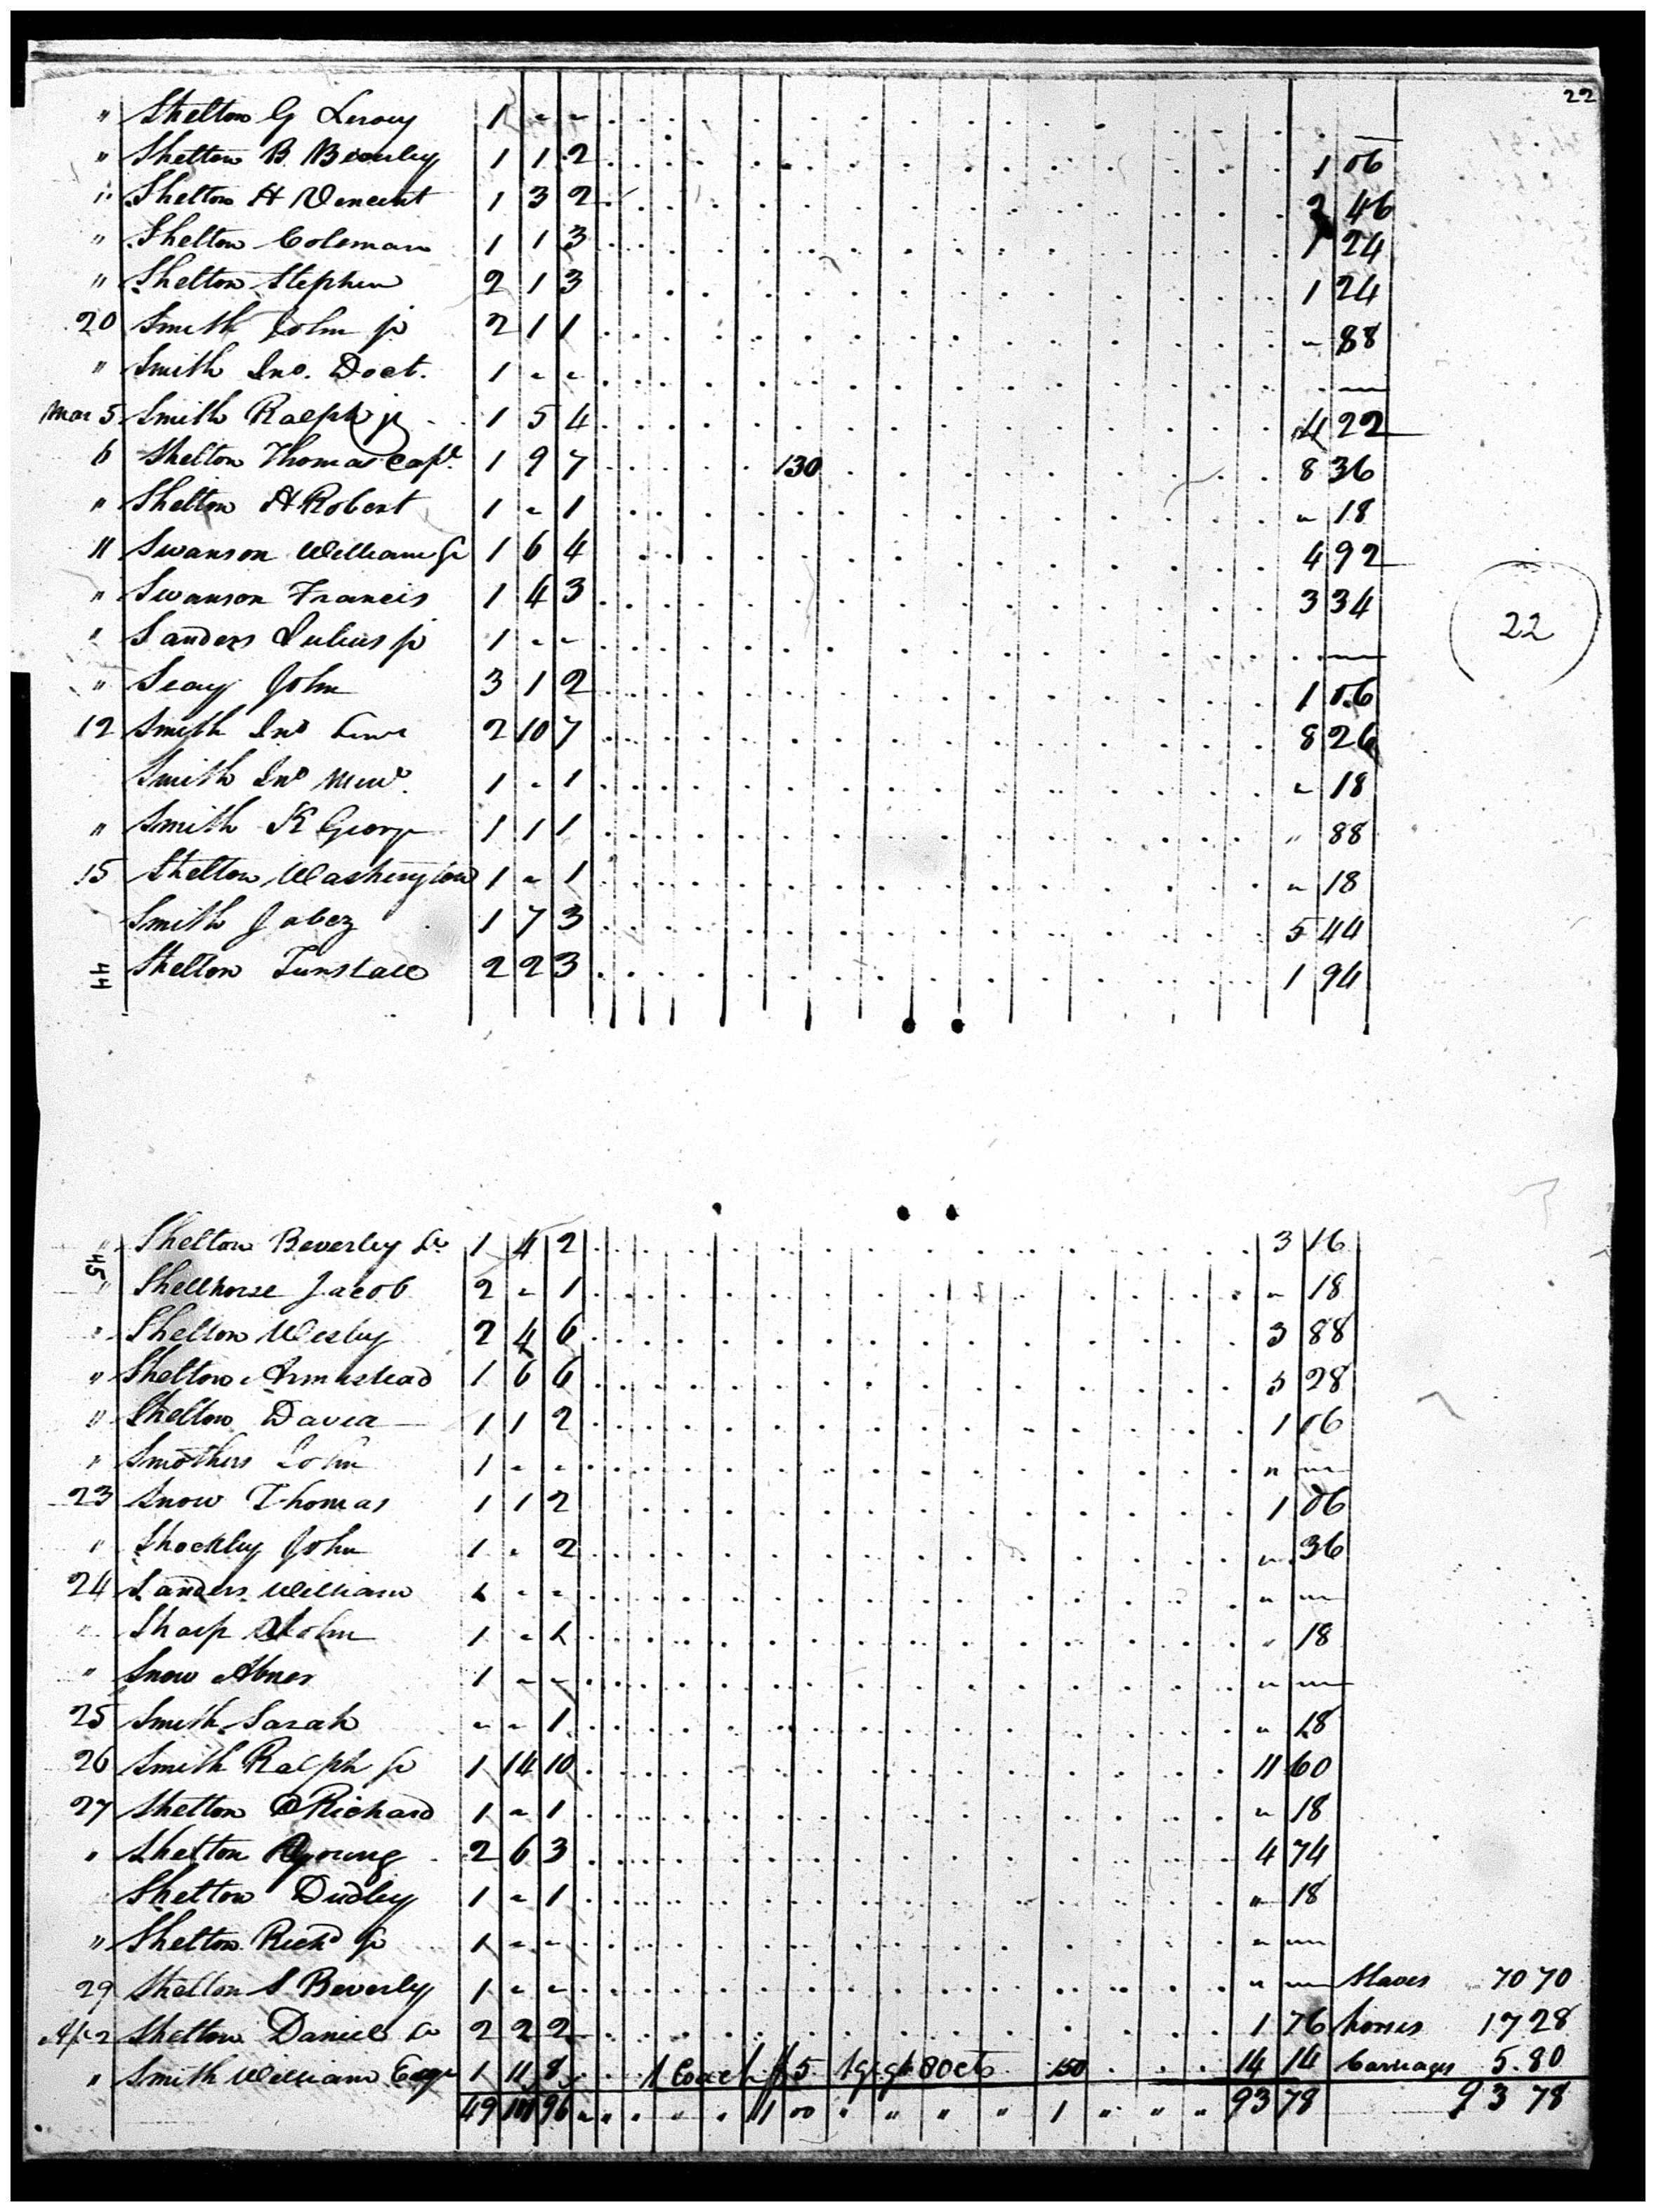 22
" Shelton G Leroy 1 - - —
" Shelton B. Beverley 1 1 2 1 06
" Shelton H Vencent 1 3 2 2 46
" Shelton Coleman 1 1 3 1 24
" Shelton Stephen 2 1 3 1 24
20 Smith John jr 2 1 1 - 88
" Smith Jno. Doct. 1 - - —
Mar 5 Smith Ralph jr 1 5 4 4 22
6 Shelton Thomas Capt. 1 9 7 130 8 36
" Shelton H Robert 1 - 1 - 18
11 Swanson William Sr 1 6 4 4 92
" Swanson Francis 1 4 3 3 34
" Sanders Julius jr 1 - - —
" Seay John 3 1 2 1 06
12 Smith Jno 2 10 7 8 26
Smith Jno 1 - 1 - 18
" Smith K George 1 1 1 " 88
15 Shelton Washington 1 - 1 - 18
Smith Jabez 1 7 3 5 44
44 Shelton Tunstall 2 2 3 1 94
22
45 " Shelton Beverley Sr 1 4 2 3 16
" Shellhorse Jacob 2 - 1 - 18
" Shelton Wesley 2 4 6 3 88
" Shelton Armistead 1 6 6 5 28
" Shelton David 1 1 2 1 06
" Smothers John 1 - - " —
23 Snow Thomas 1 1 2 1 06
" Shockley John 1 - 2 - 36
24 Sanders William 1 - - " —
" Sharp John 1 - 1 " 18
" Snow Abner 1 - - " —
25 Smith Sarah - - 1 " 18
26 Smith Ralph Sr 1 14 10 11 60
27 Shelton Richard 1 - 1 - 18
" Shelton Young 2 6 3 4 74
Shelton Dudley 1 - 1 " 18
" Shelton Richd Sr 1 - - - —
29 Shelton S Beverly 1 - - " — Slaves 70 70
Ap 2 Shelton Daniel Sr 2 2 2 1 76 horses 17 28
" Smith William Esqr 1 11 8 1 Coach $5 1 gig 80 cts 150 14 14 Carriages 5.80
49 101 96 " " " " " 1 1 00 " " " " 1 " " " 93 78 93 78